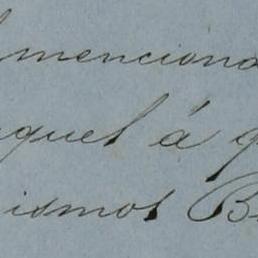 menciona
aquel á q
ismos B